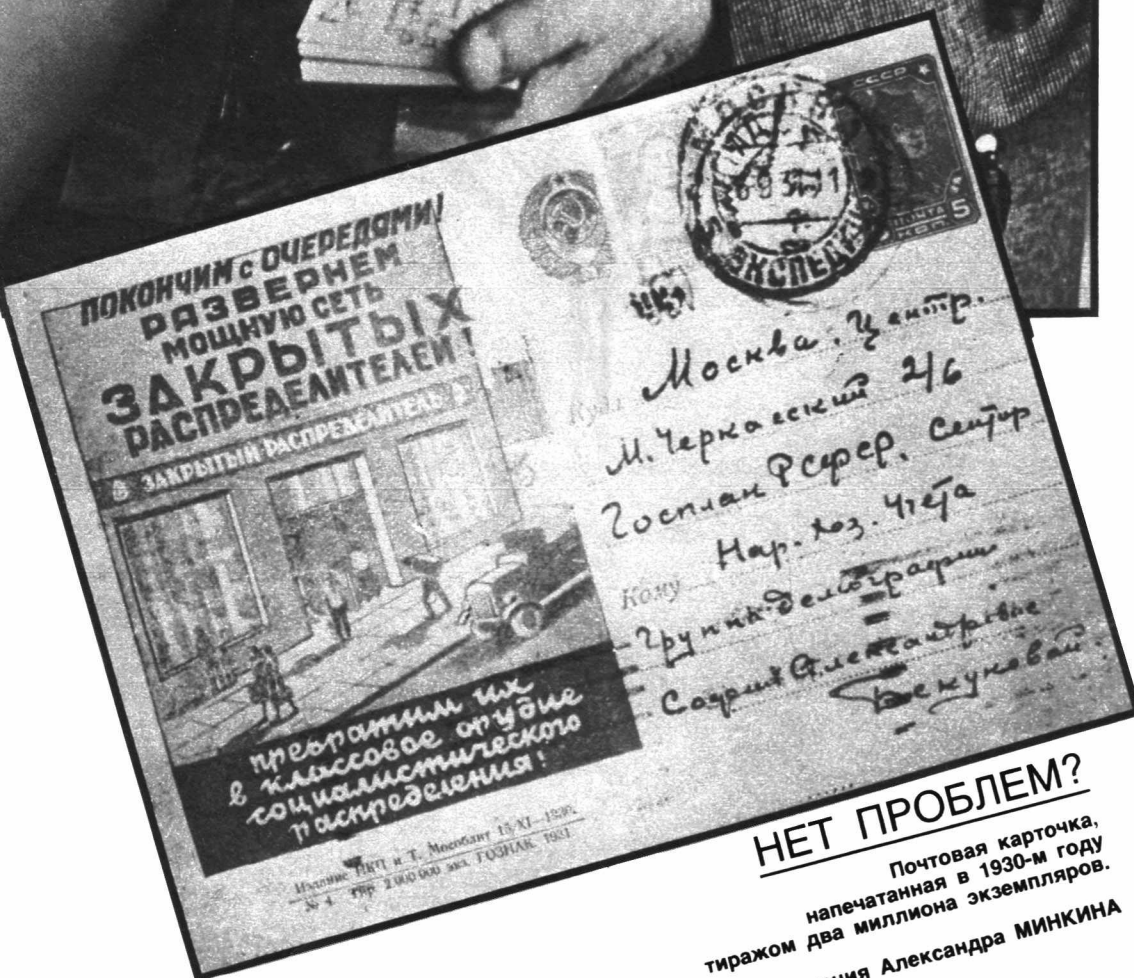 ПОКОНЧИМ с ОЧЕРЕДЯМИ!
РАЗВЕРНЕМ
МОЩНУЮ СЕТЬ
ЗАКРЫТЫХ
РАСПРЕДЕЛИТЕЛЕЙ!
ЗАКРЫТЫЙ РАСПРЕДЕЛИТЕЛЬ
превратим их
в классовое орудие
социалистического
распределения!
Издание НКП и Т. Мособлит 15/XI—1930.
№ 4 Тир 2 000 000 экз. ГОЗНАК. 1931
СССР
ПОЧТА
5
КОП
МОСКВА
ЭКСПЕД
Куда Москва. Центр.
М. Черкасский 2/6
Госплан РСФСР. Сектор
Нар. хоз. Учета
Кому
Группа демографии
Софии Александровне
НЕТ ПРОБЛЕМ?
Почтовая карточка,
напечатанная в 1930-м году
тиражом два миллиона экземпляров.
Александра МИНКИНА